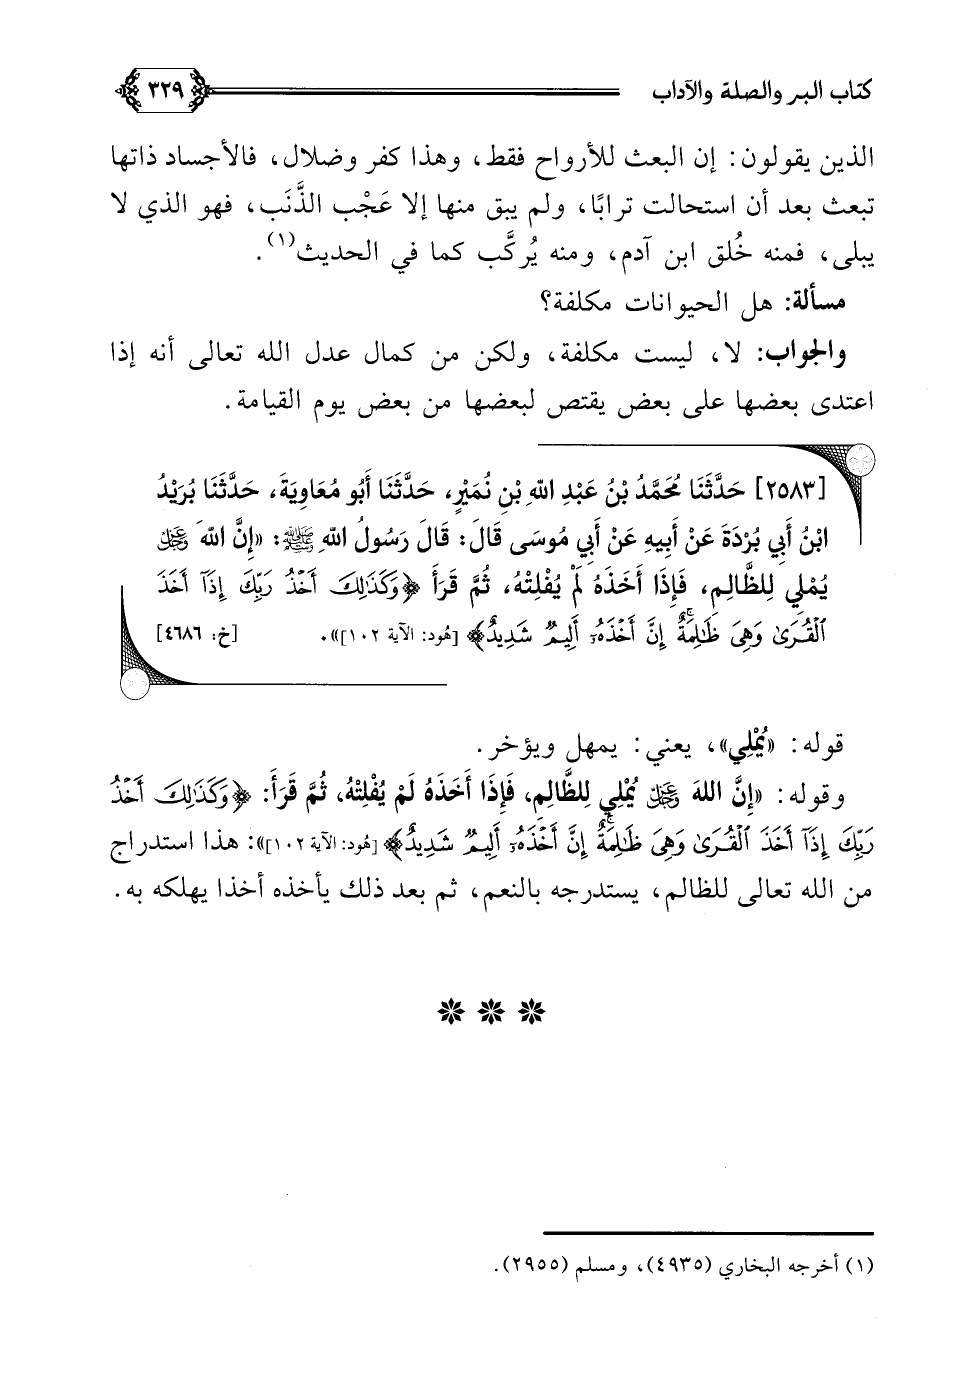 كتاب البر والصلة والآداب ٣٢٩
الذين يقولون: إن البعث للأرواح فقط، وهذا كفر وضلال، فالأجساد ذاتها
تبعث بعد أن استحالت ترابًا، ولم يبق منها إلا عَجْب الذَّنَب، فهو الذي لا
يبلى، فمنه خُلق ابن آدم، ومنه يُركَّب كما في الحديث(١).
مسألة: هل الحيوانات مكلفة؟
والجواب: لا، ليست مكلفة، ولكن من كمال عدل الله تعالى أنه إذا
اعتدى بعضها على بعض يقتص لبعضها من بعض يوم القيامة.
[٢٥٨٣] حَدَّثَنَا مُحَمَّدُ بْنُ عَبْدِ اللهِ بْنِ نُمَيْرٍ، حَدَّثَنَا أَبُو مُعَاوِيَةَ، حَدَّثَنَا بُرَيْدُ
ابْنُ أَبِي بُرْدَةَ عَنْ أَبِيهِ عَنْ أَبِي مُوسَى قَالَ: قَالَ رَسُولُ اللهِ ﷺ: «إِنَّ اللهَ عَزَّ وَجَلَّ
يُمْلِي لِلظَّالِمِ، فَإِذَا أَخَذَهُ لَمْ يُفْلِتْهُ، ثُمَّ قَرَأَ ﴿وَكَذَٰلِكَ أَخۡذُ رَبِّكَ إِذَآ أَخَذَ
ٱلۡقُرَىٰ وَهِيَ ظَٰلِمَةٌۚ إِنَّ أَخۡذَهُۥٓ أَلِيمٞ شَدِيدٌ﴾ [هُود: الآية ١٠٢]». [خ: ٤٦٨٦]
قوله: «يُمْلِي»، يعني: يمهل ويؤخر.
وقوله: «إِنَّ اللهَ عَزَّ وَجَلَّ يُمْلِي لِلظَّالِمِ، فَإِذَا أَخَذَهُ لَمْ يُفْلِتْهُ، ثُمَّ قَرَأَ: ﴿وَكَذَٰلِكَ أَخۡذُ
رَبِّكَ إِذَآ أَخَذَ ٱلۡقُرَىٰ وَهِيَ ظَٰلِمَةٌۚ إِنَّ أَخۡذَهُۥٓ أَلِيمٞ شَدِيدٌ﴾ [هُود: الآية ١٠٢]»: هذا استدراج
من الله تعالى للظالم، يستدرجه بالنعم، ثم بعد ذلك يأخذه أخذا يهلكه به.
(١) أخرجه البخاري (٤٩٣٥)، ومسلم (٢٩٥٥).